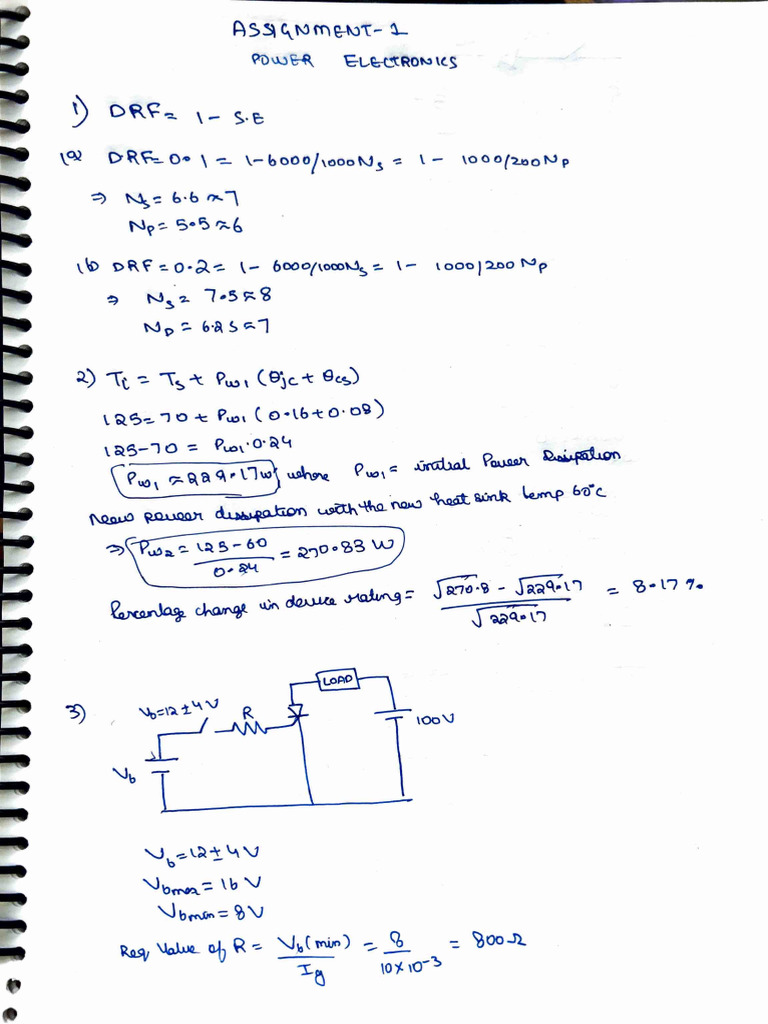 ASSIGNMENT-1
POWER ELECTRONICS
1) DRF = 1 - S.E
1a DRF=0.1 = 1-6000/1000Ns = 1 - 1000/200Np
⇒ Ns = 6.6 ≈ 7
Np = 5.5 ≈ 6
1b DRF = 0.2 = 1 - 6000/1000Ns = 1 - 1000/200 Np
⇒ Ns = 7.5 ≈ 8
Np = 6.25 ≈ 7
2) Tj = Ts + Pw1 (θjc + θcs)
125 = 70 + Pw1 (0.16+0.08)
125-70 = Pw1.0.24
Pw1 ≈ 229.17w where Pw1 = initial Power Dissipation
New power dissipation with the new heat sink temp 60°c
⇒ Pw2 = 125-60/0.24 = 270.83 W
Percentage change in device rating = √270.8 - √229.17/√229.17 = 8.17 %
3) Vb=12±4V
R
LOAD
100V
Vb
Vb = 12 ± 4V
Vbmax = 16 V
Vbmin = 8V
Req Value of R = Vb(min)/Ig = 8/10×10-3 = 800Ω